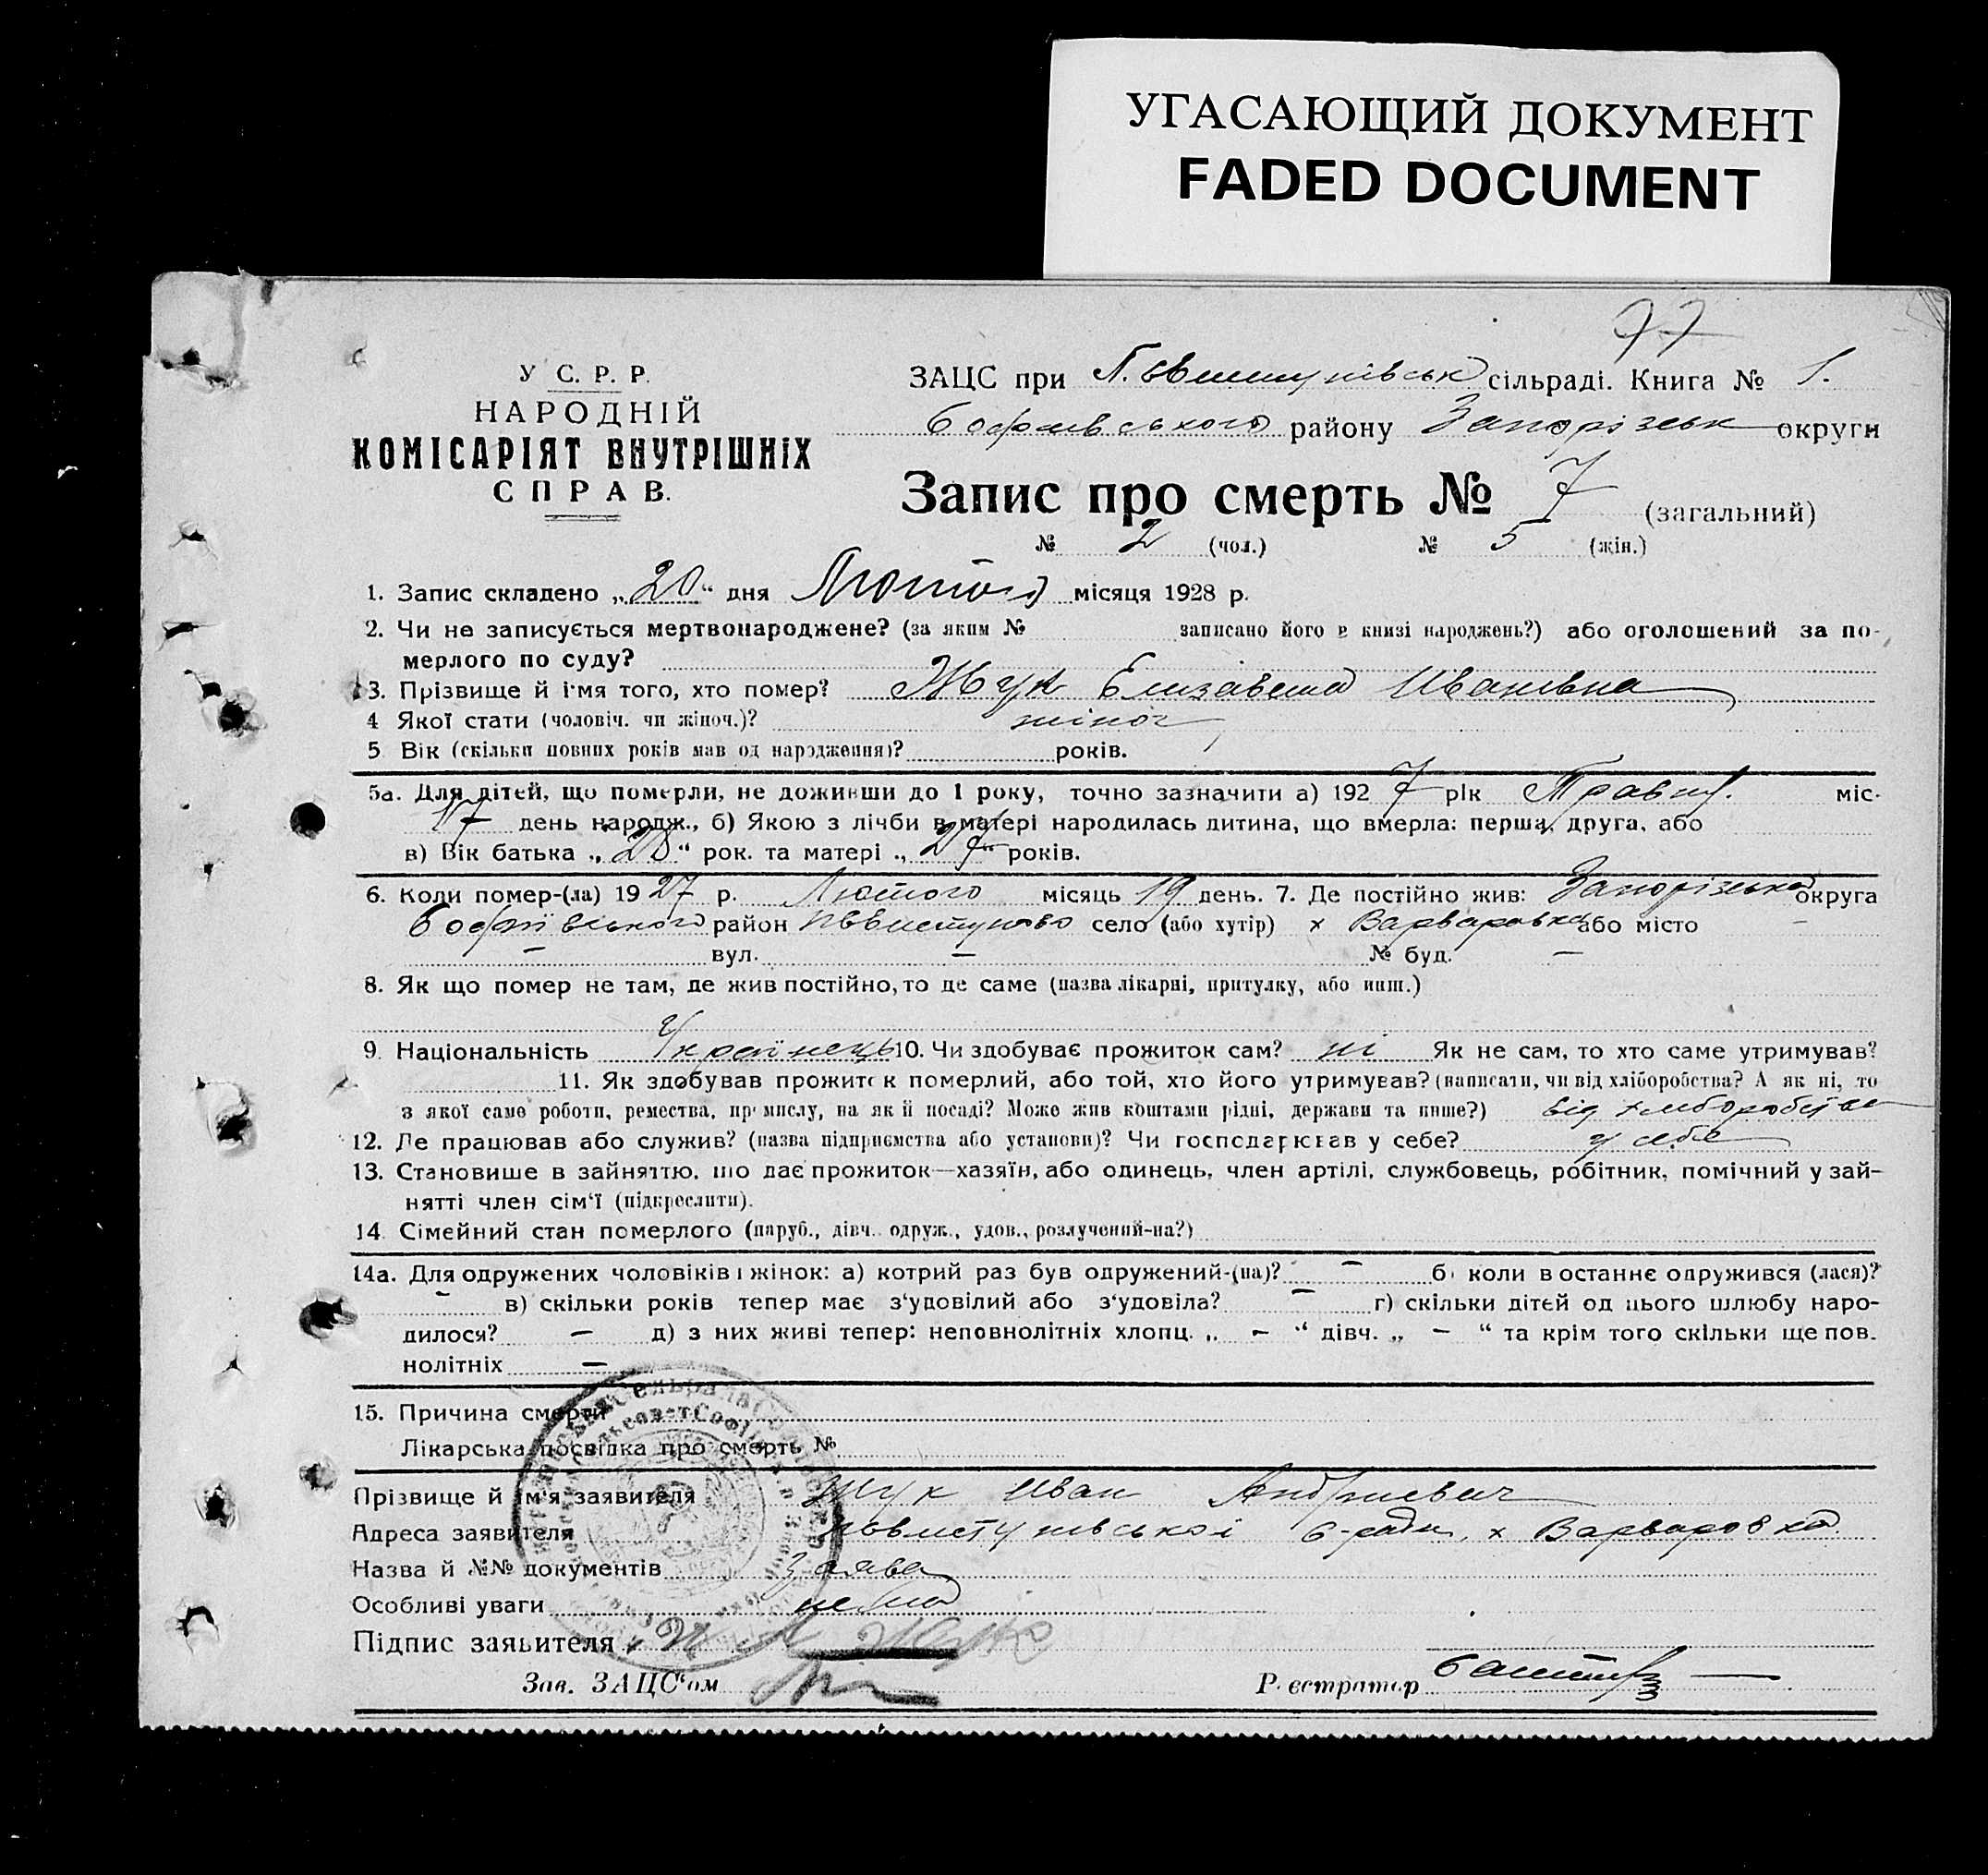 УГАСАЮЩИЙ ДОКУМЕНТ
FADED DOCUMENT
77
У С. Р. Р.
НАРОДНІЙ
КОМІСАРІЯТ ВНУТРІШНІХ
СПРАВ.
ЗАЦС при сільраді. Книга № 1.
Софіївського району Запорізськ округи
Запис про смерть № 7 (загальний)
№ 2 (чол.) № 5 (жін.)
1. Запис складено „20“ дня Лютого місяця 1928 р.
2. Чи не записується мертвонароджене? (за яким № записано його в книзі народжень?) або оголошений за по-
мерлого по суду?
3. Прізвище й ім'я того, хто помер? Жук Елизавета Ивановна
4 Якої стати (чоловіч. чи жіноч.)? жіноч
5 Вік (скільки повних років мав од народження)? років.
5а. Для дітей, що померли, не доживши до 1 року, точно зазначити а) 1927 рік Травн. міс.
17 день народж., б) Якою з лічби в матері народилась дитина, що вмерла: перша, друга, або
в) Вік батька „28“ рок. та матері „27“ років.
6. Коли помер-(ла) 1927 р. Лютого місяць 19 день. 7. Де постійно жив: Запорізська округа
Софіївського район село (або хутір) х Варваровка або місто –
– вул. – № буд. –
8. Як що помер не там, де жив постійно, то де саме (назва лікарні, притулку, або инш.)
9. Національність Українець 10. Чи здобуває прожиток сам? ні Як не сам, то хто саме утримував?
11. Як здобував прожиток померлий, або той, хто його утримував? (написати, чи від хліборобства? А як ні, то
з якої саме роботи, ремества, промислу, на якій посаді? Може жив коштами рідні, держави та инше?) від хліборобства
12. Де працював або служив? (назва підприємства або установи)? Чи господарював у себе? у себе
13. Становище в зайняттю, що дає прожиток—хазяїн, або одинець, член артілі, службовець, робітник, помічний у зай-
нятті член сім'ї (підкреслити).
14. Сімейний стан померлого (паруб., дівч. одруж., удов., розлучений-на?)
14а. Для одружених чоловіків і жінок: а) котрий раз був одружений-(на)? – б) коли в останнє одружився (лася)?
– в) скільки років тепер має з'удовілий або з'удовіла? – г) скільки дітей од цього шлюбу наро-
дилося? – д) з них живі тепер: неповнолітніх хлопц. „ – “ дівч. „ – “ та крім того скільки ще пов.
нолітніх –
15. Причина смерти
Лікарська посвідка про смерть №
Прізвище й ім'я заявителя Жук Иван Андриевич
Адреса заявителя с-ради, х Варваровка
Назва й №№ документів заява
Особливі уваги нема
Підпис заявителя И А Жук
Зав. ЗАЦС'ом
Реєстратор